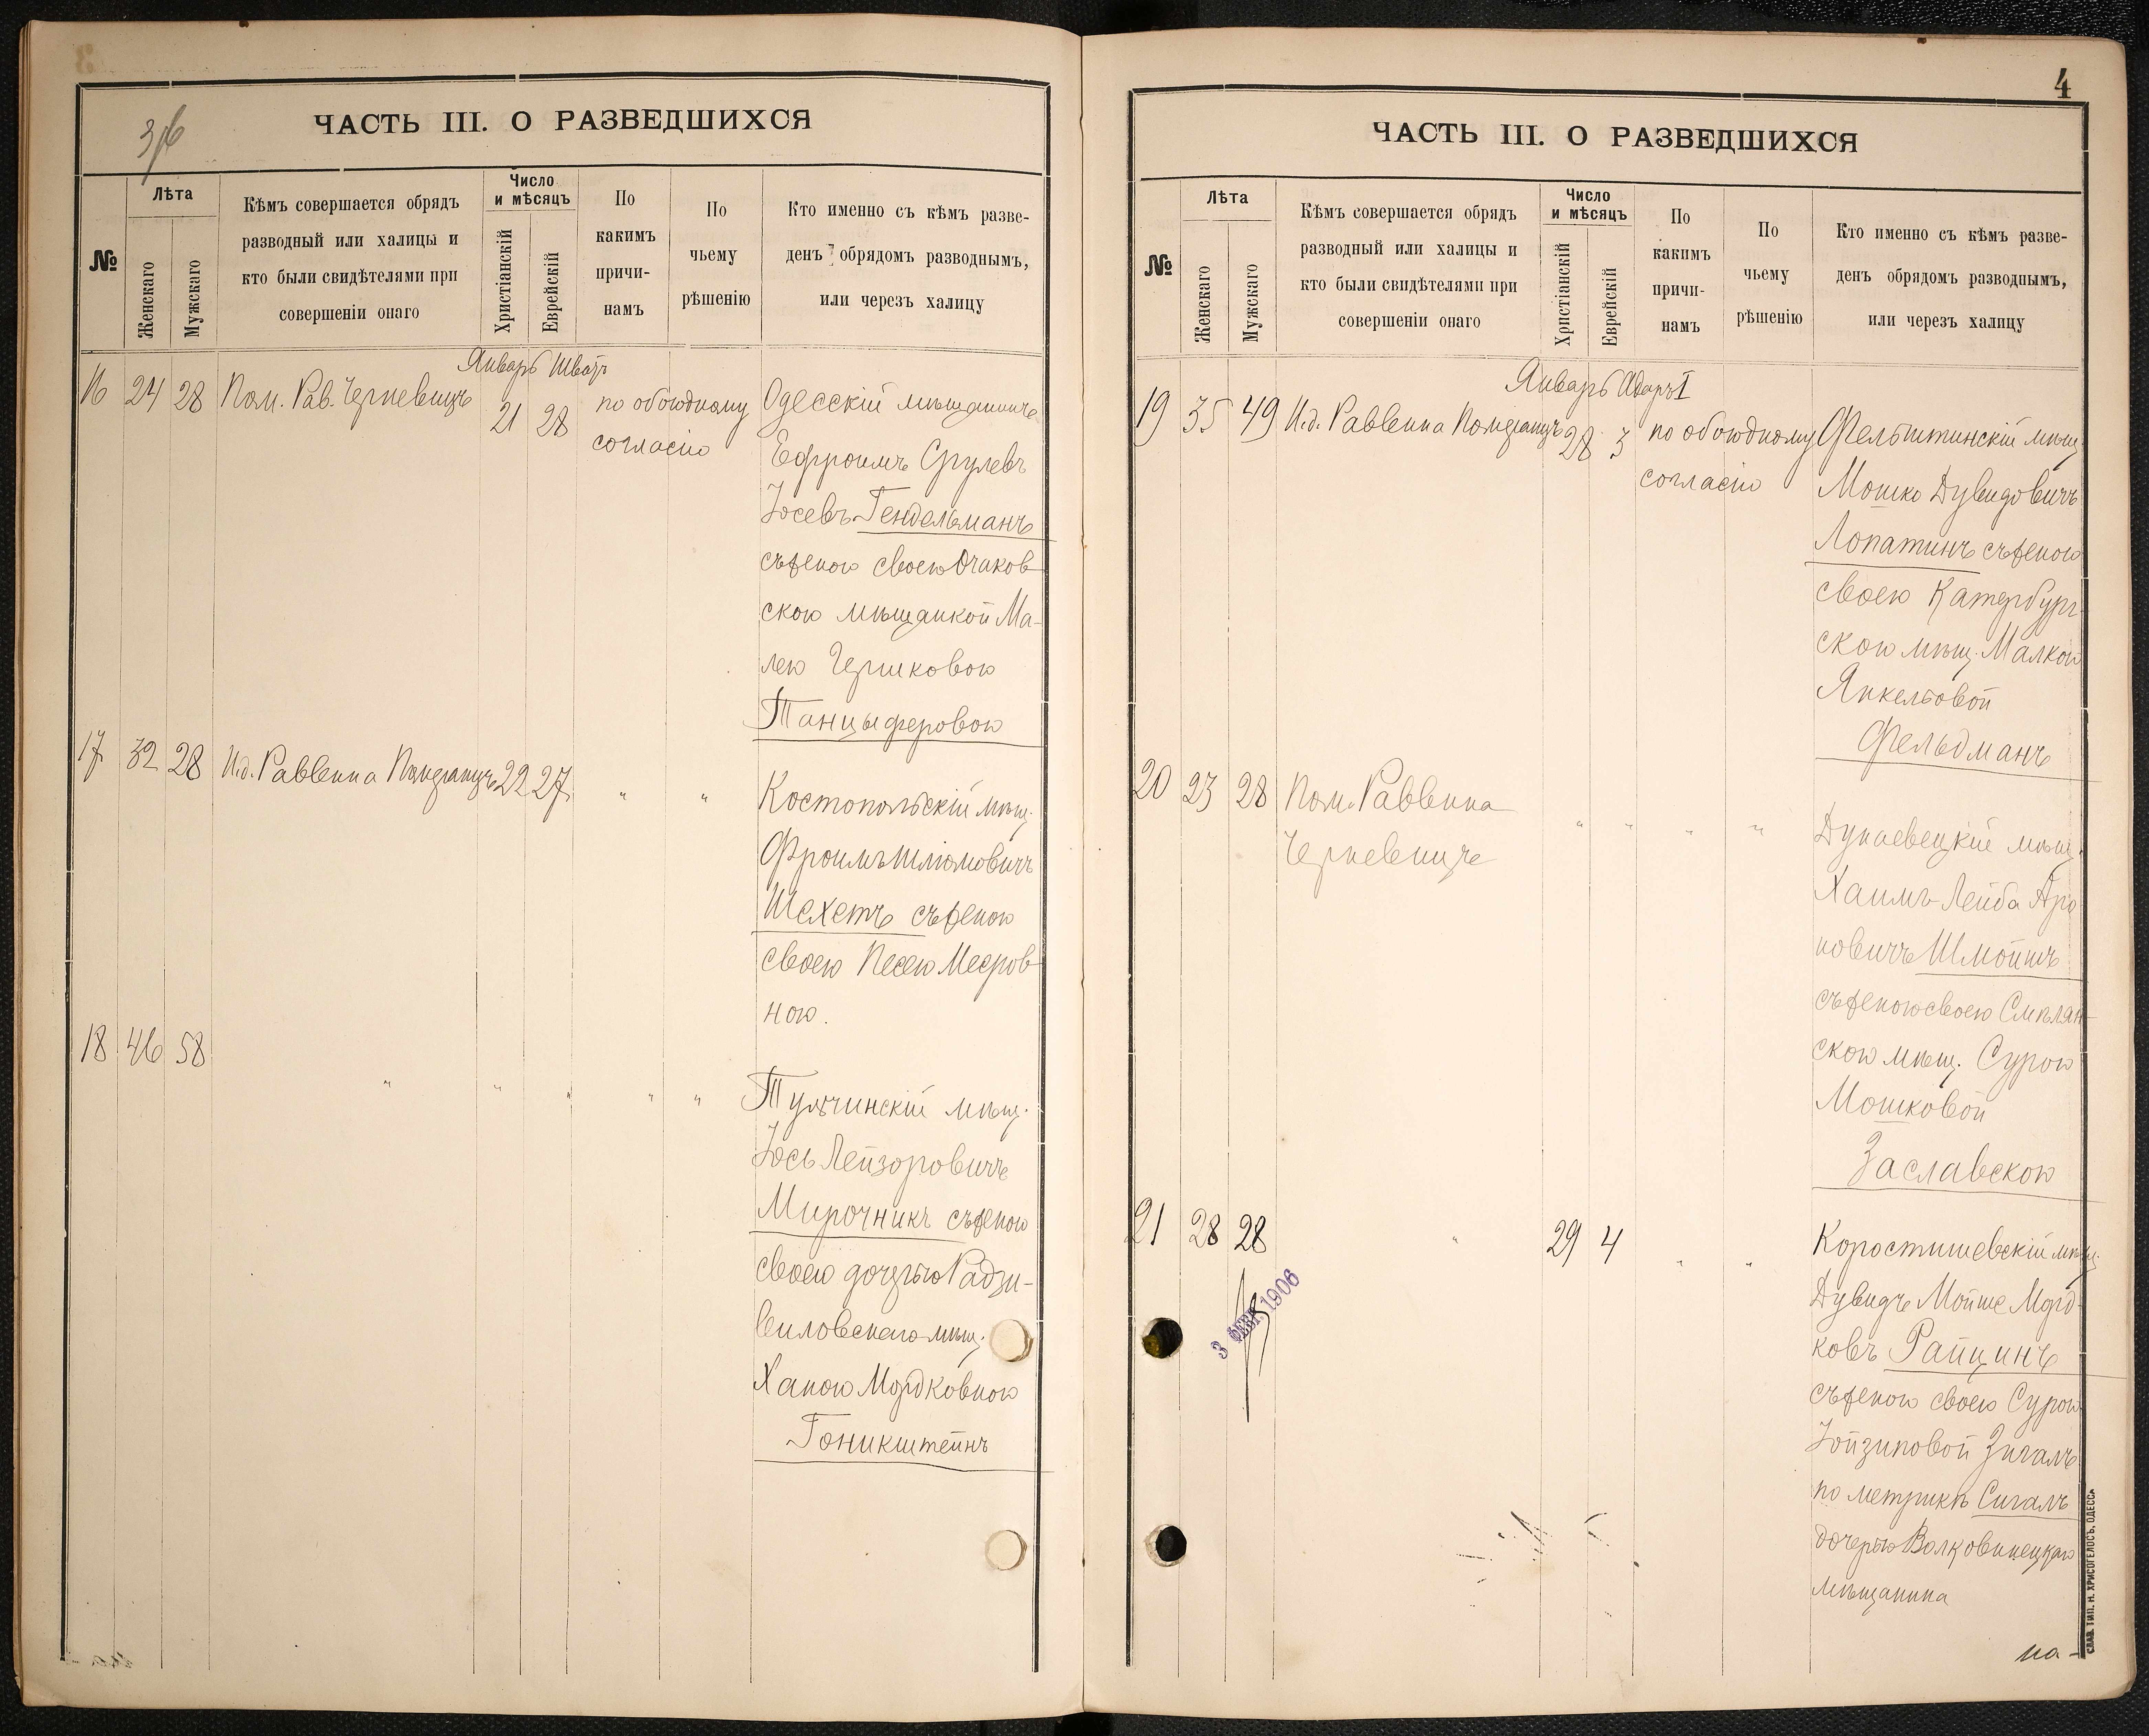 ЧАСТЬ III. О РАЗВЕДШИХСЯ
№
Лѣта
Женскаго
Мужскаго
Кѣмъ совершается обрядъ
разводный или халицы и
кто были свидѣтелями при
совершеніи онаго
Число
и мѣсяцъ
Христіанскій
Еврейскій
По
какимъ
причи-
намъ
По
чьему
рѣшенію
Кто именно съ кѣмъ разве-
денъ обрядомъ разводнымъ,
или черезъ халицу
Январь Шватъ
16 24 28 Пом. Рав. Черневицъ 21 28 по обоюдному
согласію
Одесскій мѣщанинъ
Ефроимъ Срулевъ
Іосевъ Гендельманъ
съ женою своею Очаков-
скою мѣщанкой Ма-
лею Гершковою
Танцыферовою
17 32 28 И.д. Раввина Помдранцъ 22 27 " "
Костопольскій мѣщ.
Фроимъ Шлиомовичъ
Шехетъ съ женою
своею Песею Меэров-
ною.
18 46 58 " " " " "
Тульчинскій мѣщ.
Іось Лейзоровичъ
Мирочникъ съ женою
своею дочерью Радзи-
виловскаго мѣщ.
Ханою Мордковною
Гоникштейнъ
4
ЧАСТЬ III. О РАЗВЕДШИХСЯ
№
Лѣта
Женскаго
Мужскаго
Кѣмъ совершается обрядъ
разводный или халицы и
кто были свидѣтелями при
совершеніи онаго
Число
и мѣсяцъ
Христіанскій
Еврейскій
По
какимъ
причи-
намъ
По
чьему
рѣшенію
Кто именно съ кѣмъ разве-
денъ обрядомъ разводнымъ,
или черезъ халицу
Январь Адаръ I
19 35 49 И.д. Раввина Помдранцъ 28 3 по обоюдному
согласію
Фельштинскій мѣщ.
Мошко Дувидовичъ
Лопатинъ съ женою
своею Катербург-
скою мѣщ. Малкой
Янкелевой
Фельдманъ
20 23 28 Пом. Раввина
Черневицъ
" " " "
Дунаевецкій мѣщ.
Хаимъ-Лейба Аро
новичъ Шмойшъ
съ женою своею Смѣлян-
скою мѣщ. Сурою
Мошковой
Заславскою
21 28 28 " 29 4 " "
Коростишевскій мѣщ.
Дувидъ Мойше Морд-
ковъ Райцинъ
съ женою своею Сурою
Іойзиповой Зигалъ
по метрикѣ Сигалъ
дочерью Волковинецкаго
мѣщанина
3 ФЕВР. 1906
на-
СЛАВ. ТИП. Н. ХРИСОГЕЛОСЪ, ОДЕССА